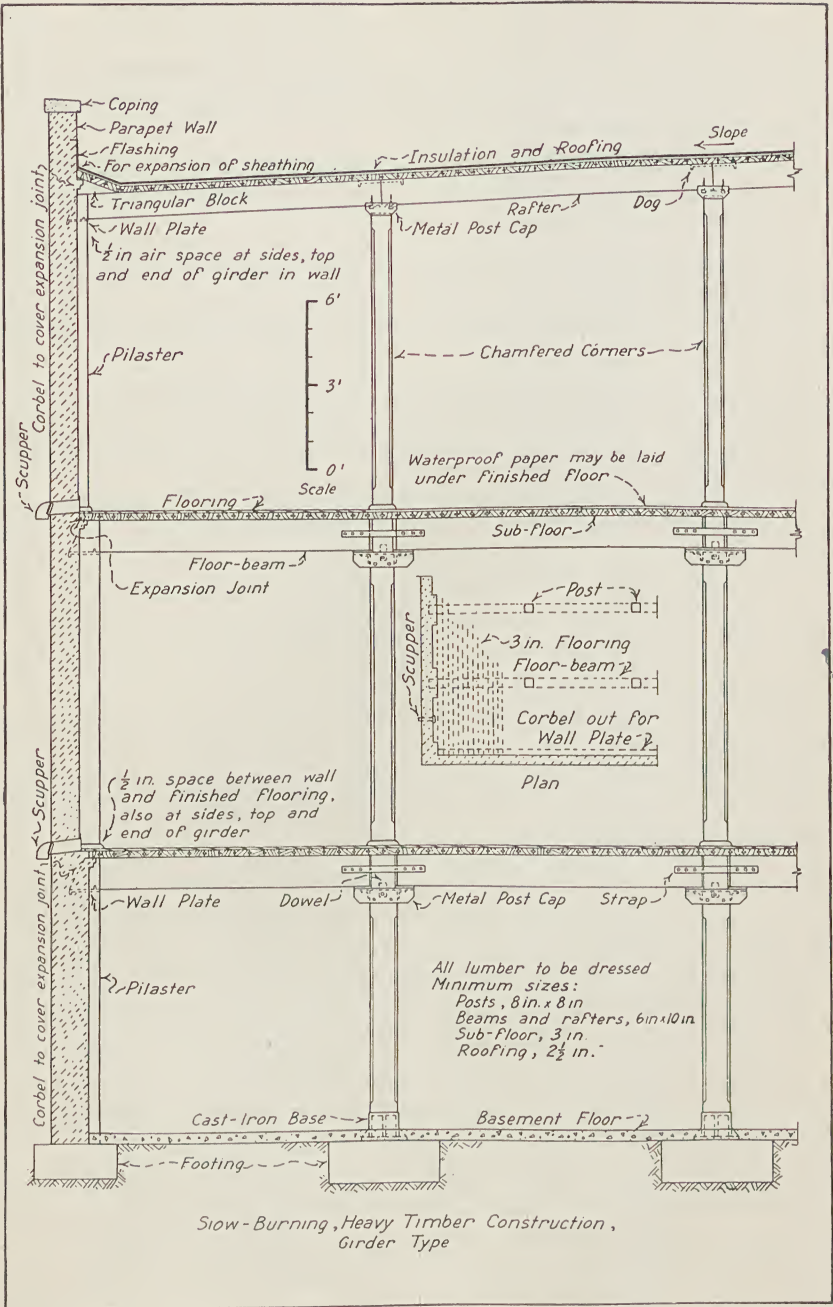 Coping
Parapet Wall
Flashing
For expansion of sheathing
Insulation and Roofing
Slope
Triangular Block
Rafter
Dog
Wall Plate
Metal Post Cap
½ in air space at sides, top
and end of girder in wall
Corbel to cover expansion joint
6'
Pilaster
Chamfered Corners
3'
Scupper
0'
Scale
Waterproof paper may be laid
under finished floor
Flooring
Sub-floor
Floor-beam
Expansion Joint
Post
Scupper
3 in. Flooring
Floor-beam
Corbel out for
Wall Plate
Plan
Scupper
½ in. space between wall
and finished flooring,
also at sides, top and
end of girder
Wall Plate
Dowel
Metal Post Cap
Strap
Corbel to cover expansion joint
Pilaster
All lumber to be dressed
Minimum sizes:
Posts, 8 in. x 8 in
Beams and rafters, 6in x 10in
Sub-floor, 3 in.
Roofing, 2½ in.
Cast-Iron Base
Basement Floor
Footing
Slow-Burning, Heavy Timber Construction,
Girder Type